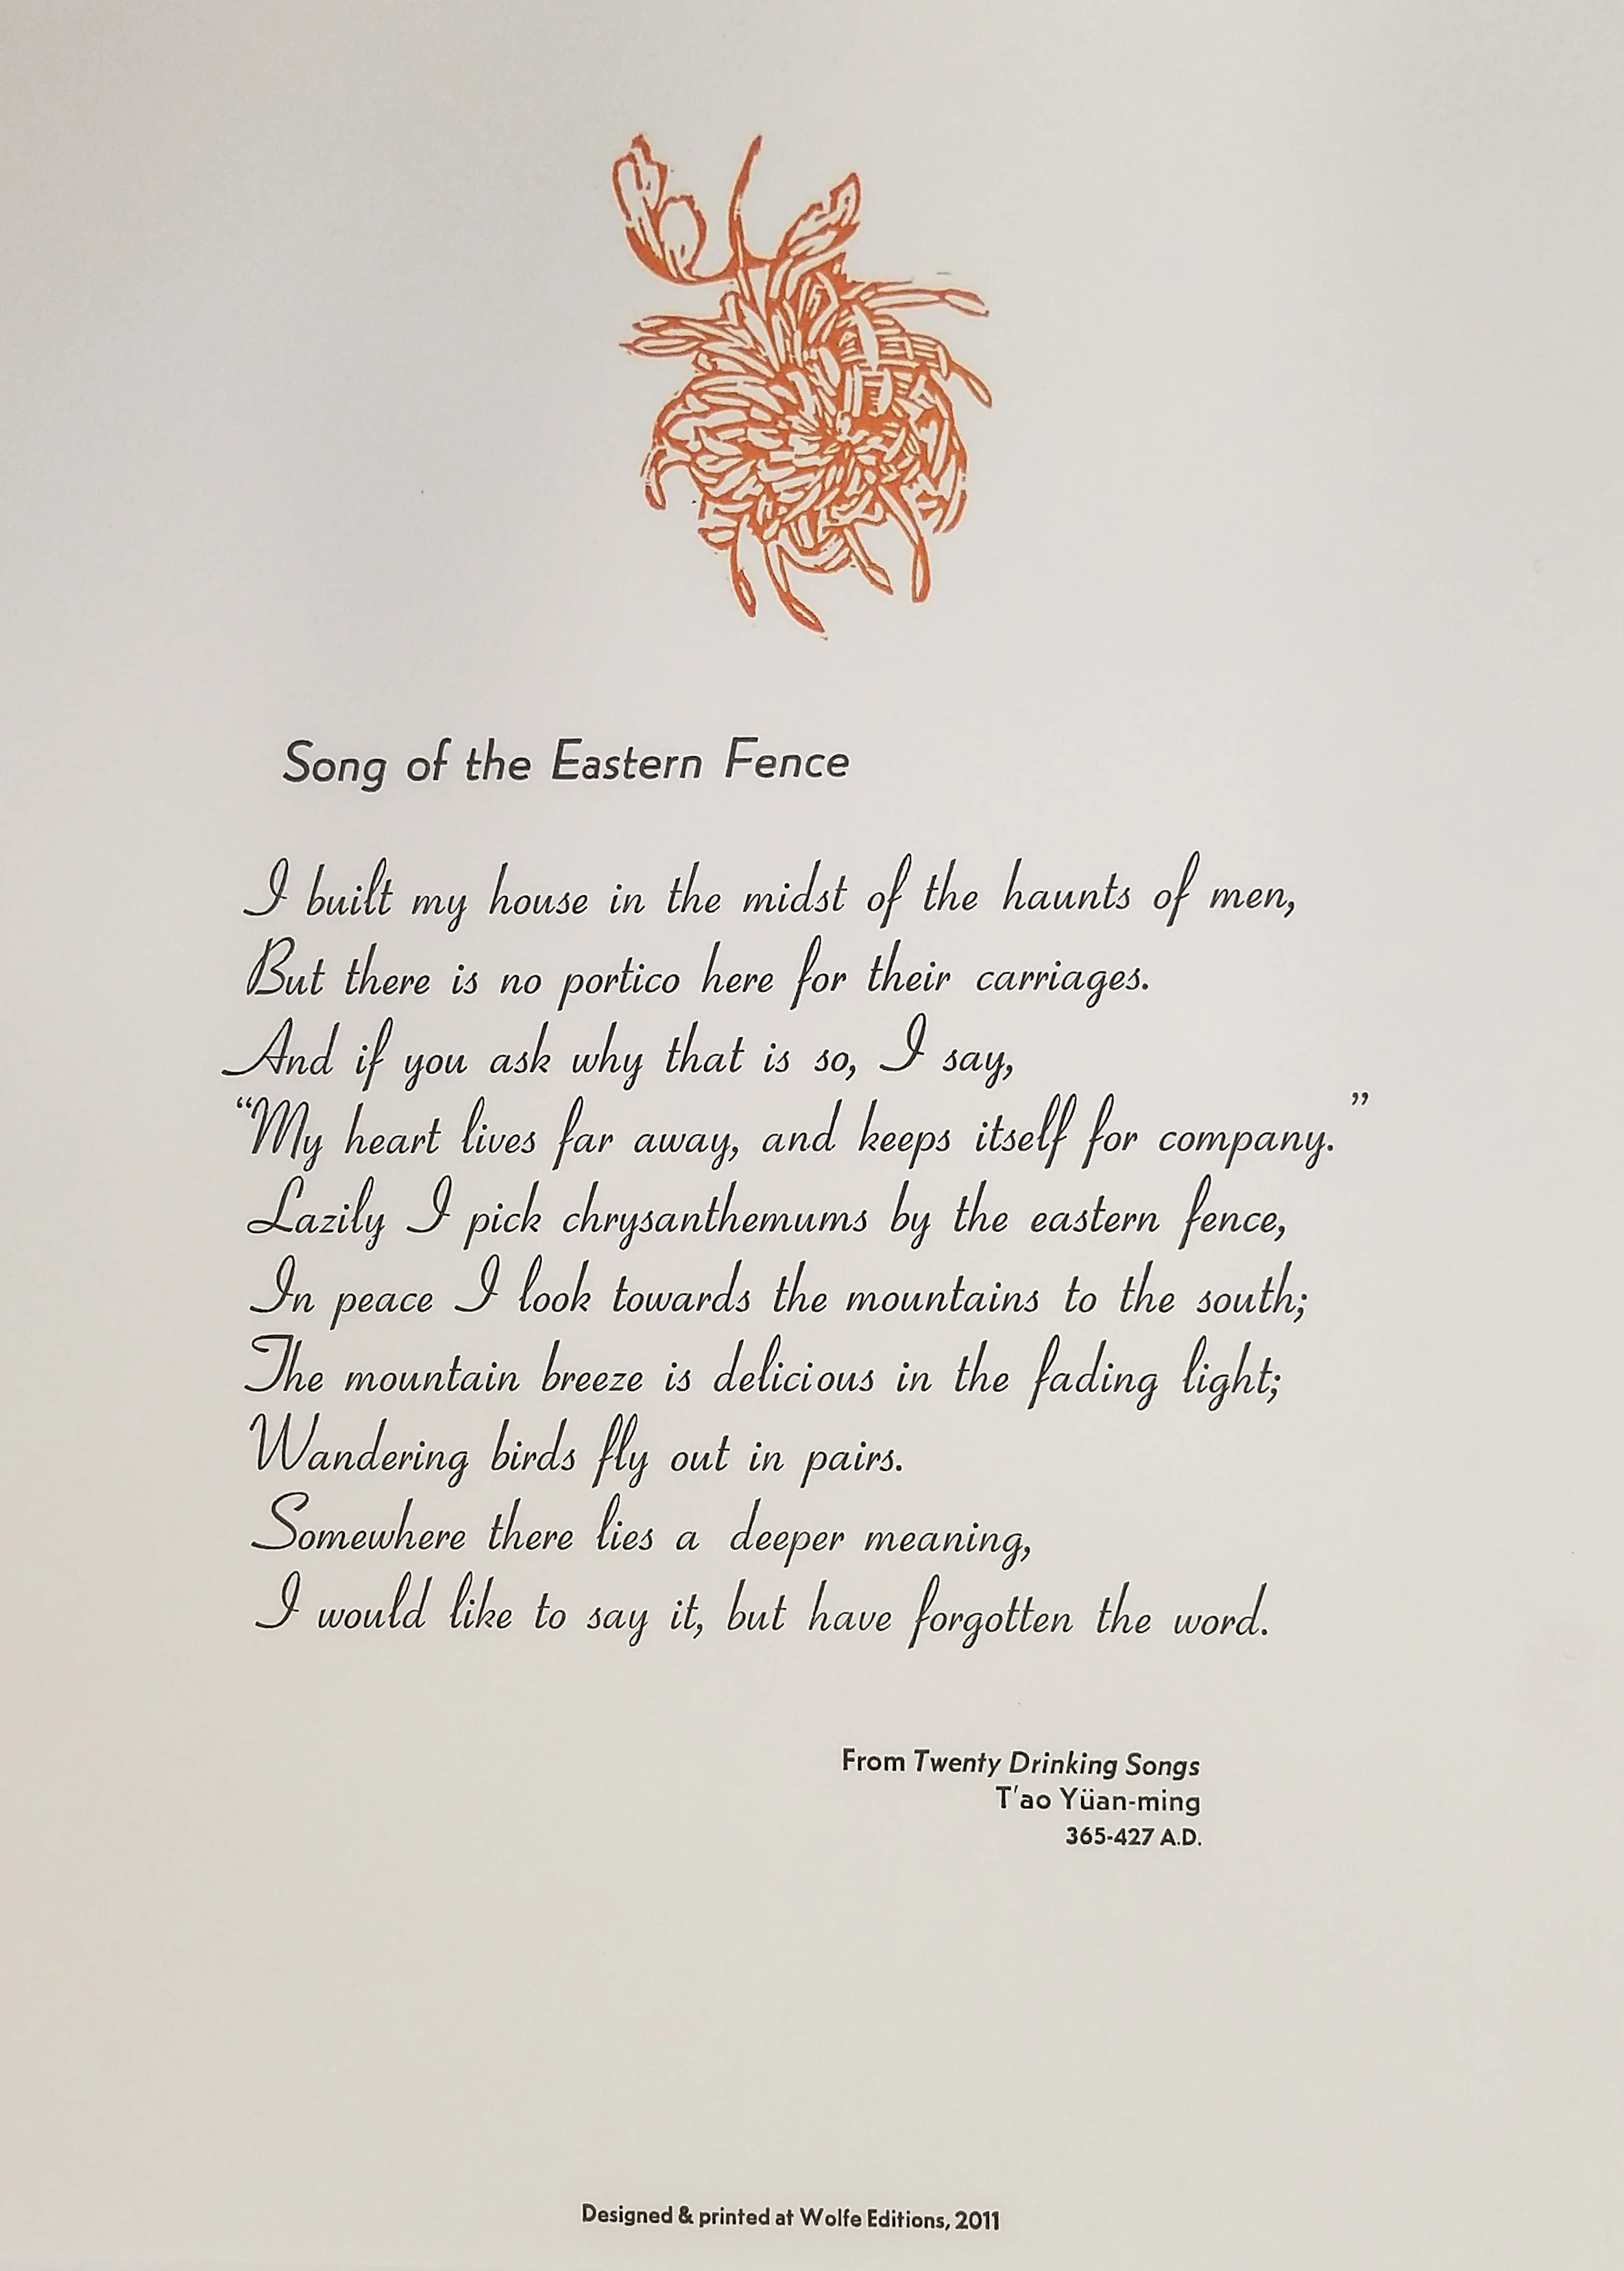 Song of the Eastern Fence
I built my house in the midst of the haunts of men,
But there is no portico here for their carriages.
And if you ask why that is so, I say,
“My heart lives far away, and keeps itself for company.”
Lazily I pick chrysanthemums by the eastern fence,
In peace I look towards the mountains to the south;
The mountain breeze is delicious in the fading light;
Wandering birds fly out in pairs.
Somewhere there lies a deeper meaning,
I would like to say it, but have forgotten the word.
From Twenty Drinking Songs
T'ao Yüan-ming
365-427 A.D.
Designed & printed at Wolfe Editions, 2011